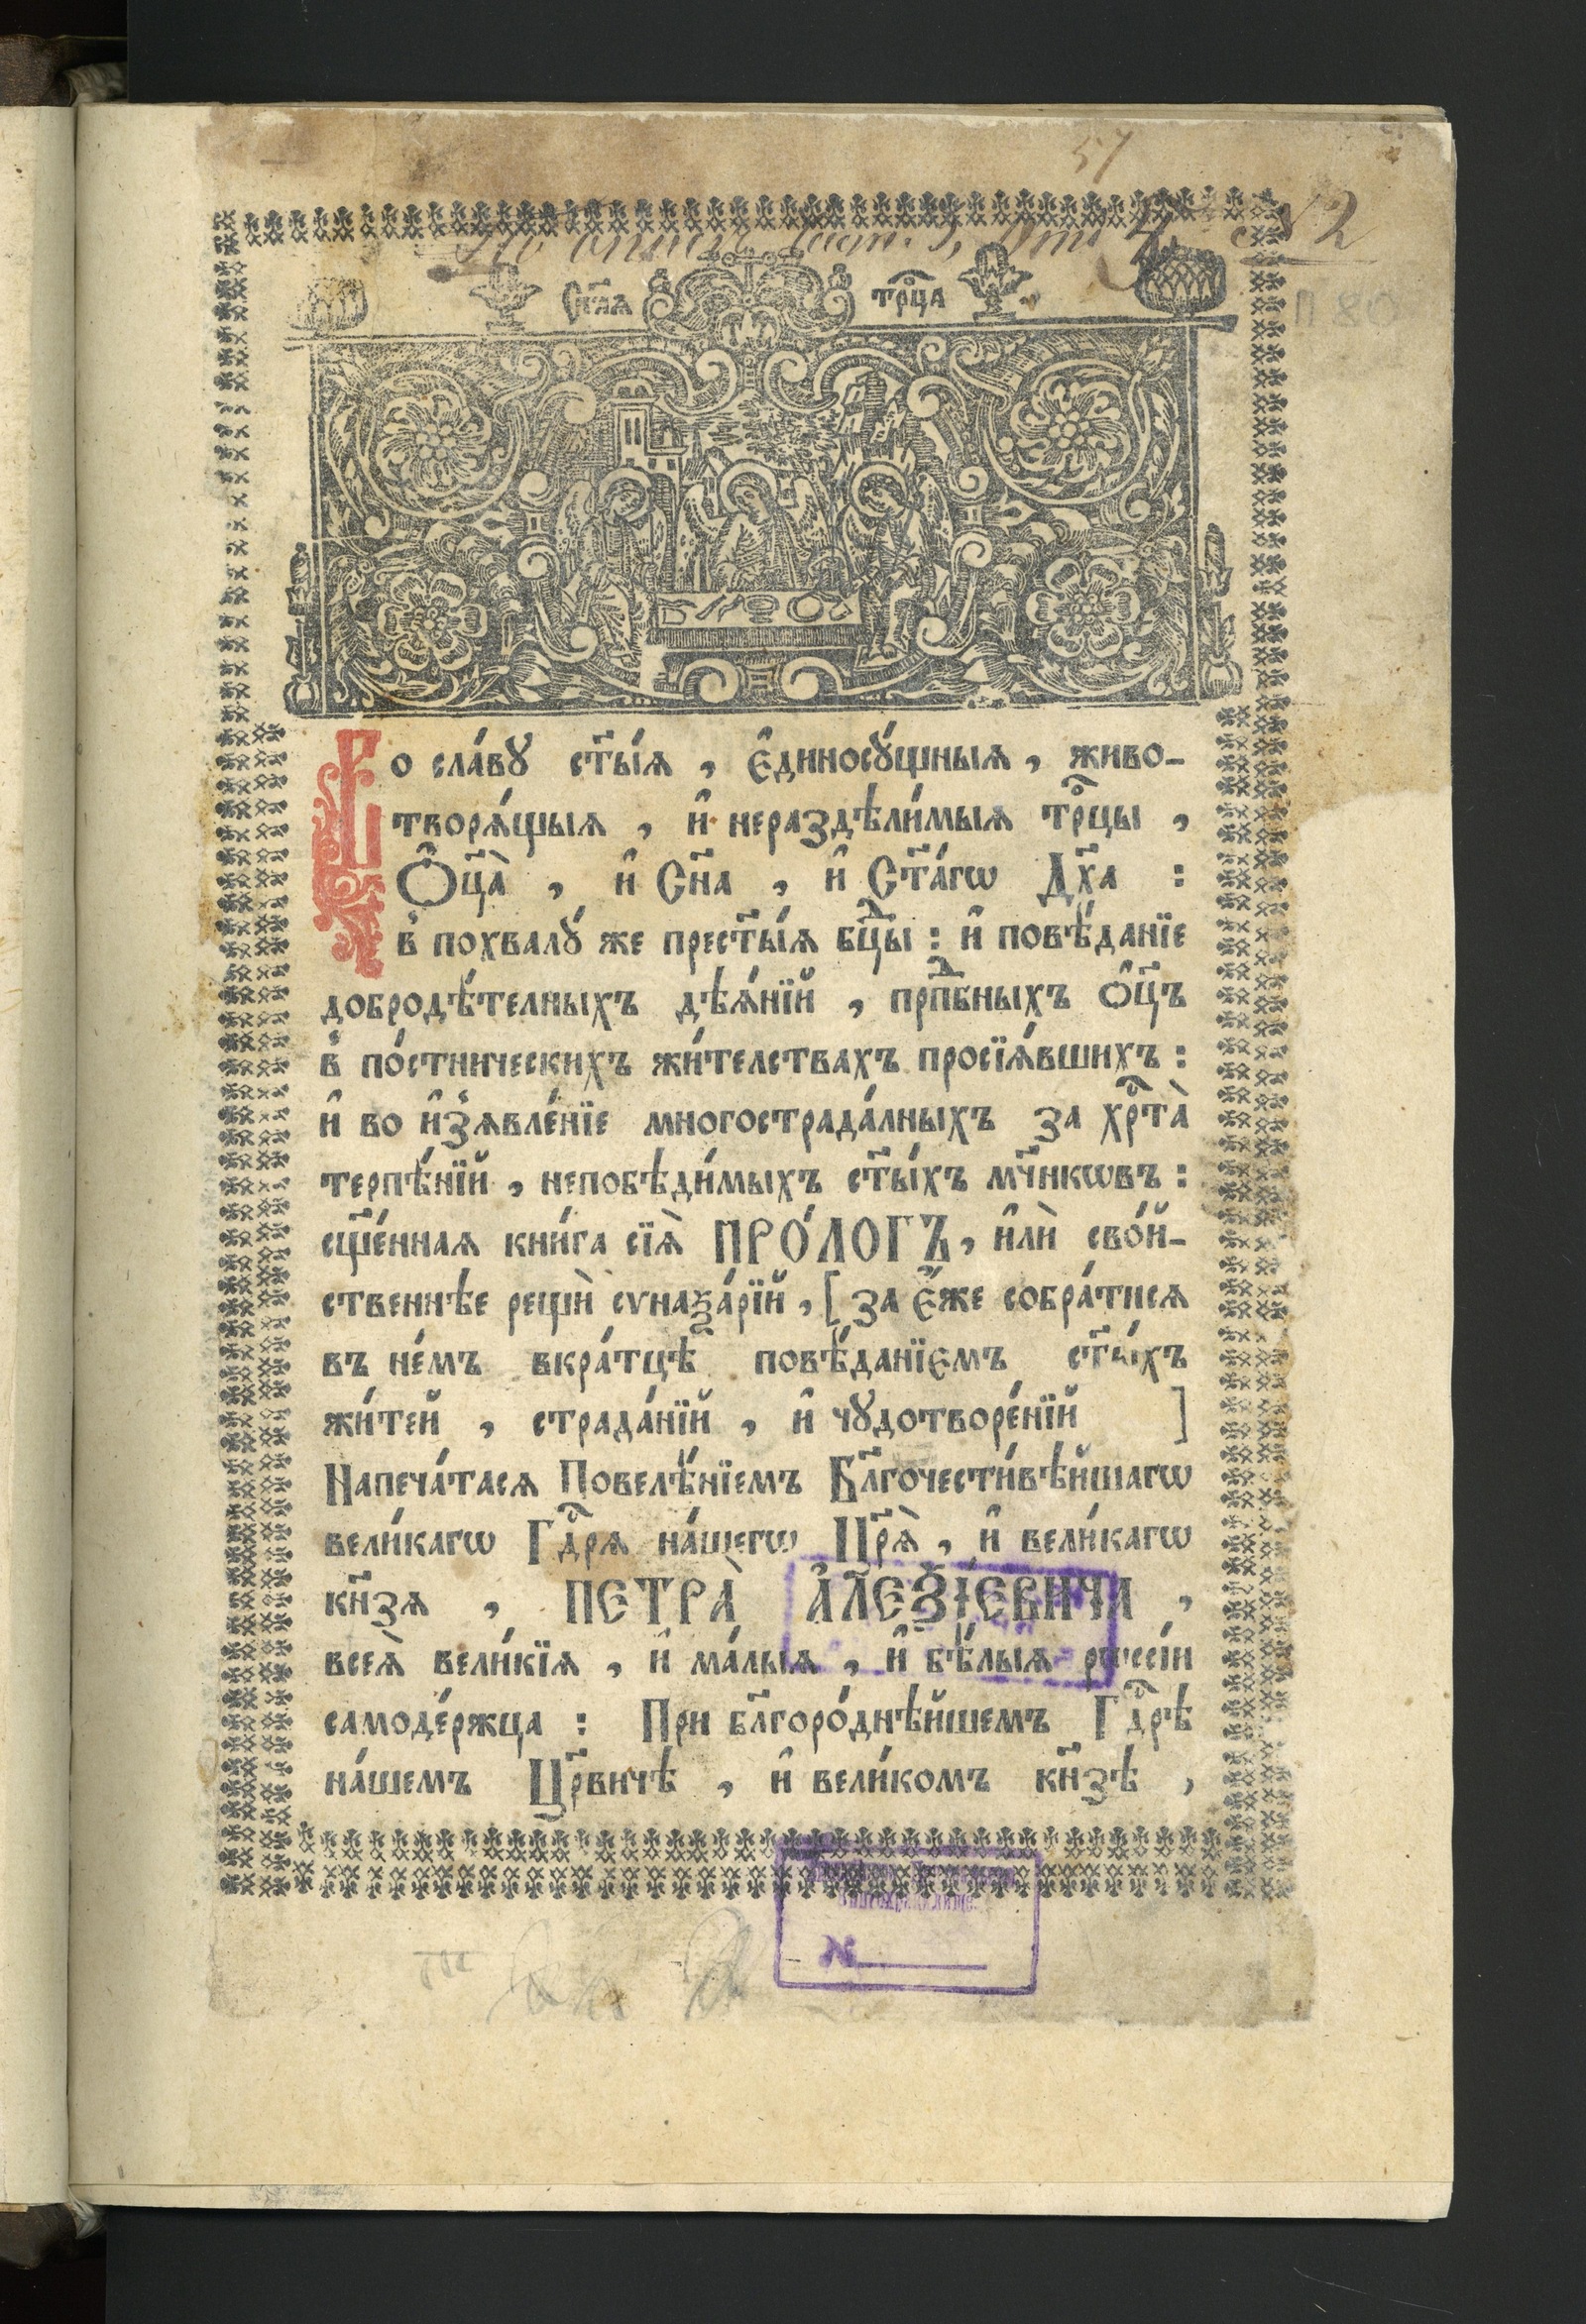 57
№ 2
П 80
Ст҃ая трⷪ҇ца
Во сла́вꙋ ст҃ы́ѧ , є҆диносꙋ́щныѧ , живо-
творѧ́щыѧ , и҆ нераздѣли́мыѧ трⷪ҇цы ,
Ѻ҆ц҃а̀ , и҆ Сн҃а , и҆ Ст҃а́гѡ Дх҃а :
в̾ похвалꙋ́ же прест҃ы́ѧ бцⷣы : и҆ повѣ́данїе
добродѣ́телныхъ дѣѧ́нїй , прпⷣбныхъ ѻ҆ц҃ъ
в̾ по́стническихъ жи́телствахъ просїѧ́вшихъ :
и҆ во и҆з̾ѧвле́нїе многострада́лныхъ за хрⷭ҇та̀
терпѣ́нїй , непобѣди́мыхъ ст҃ы́хъ мч҃нкѡвъ :
сщ҃е́ннаѧ кни́га сїѧ̀ ПРО́ЛОГЪ , и҆лѝ сво́й-
ственнѣе рещѝ сѵнаѯа́рїй , [ за є҆́же собра́тисѧ
въ не́мъ вкра́тцѣ повѣ́данїємъ ст҃ы́хъ
жи́тей , страда́нїй , и҆ чꙋдотворе́нїй ]
Напеча́тасѧ Повелѣ́нїемъ Бл҃гочести́вѣйшагѡ
вели́кагѡ Гдⷭ҇рѧ на́шегѡ Цр҃ѧ̀ , и҆ вели́кагѡ
кн҃зѧ , ПЄТРА̀ А҆ЛЄѮІ́ЄВИЧА ,
всеѧ̀ вели́кїѧ , и҆ ма́лыѧ , и҆ бѣ́лыѧ рѡссі́и
самоде́ржца : При бл҃горо́днѣйшемъ Гдⷭ҇рѣ
на́шемъ Цр҃вичѣ , и҆ вели́комъ кн҃зѣ ,
№